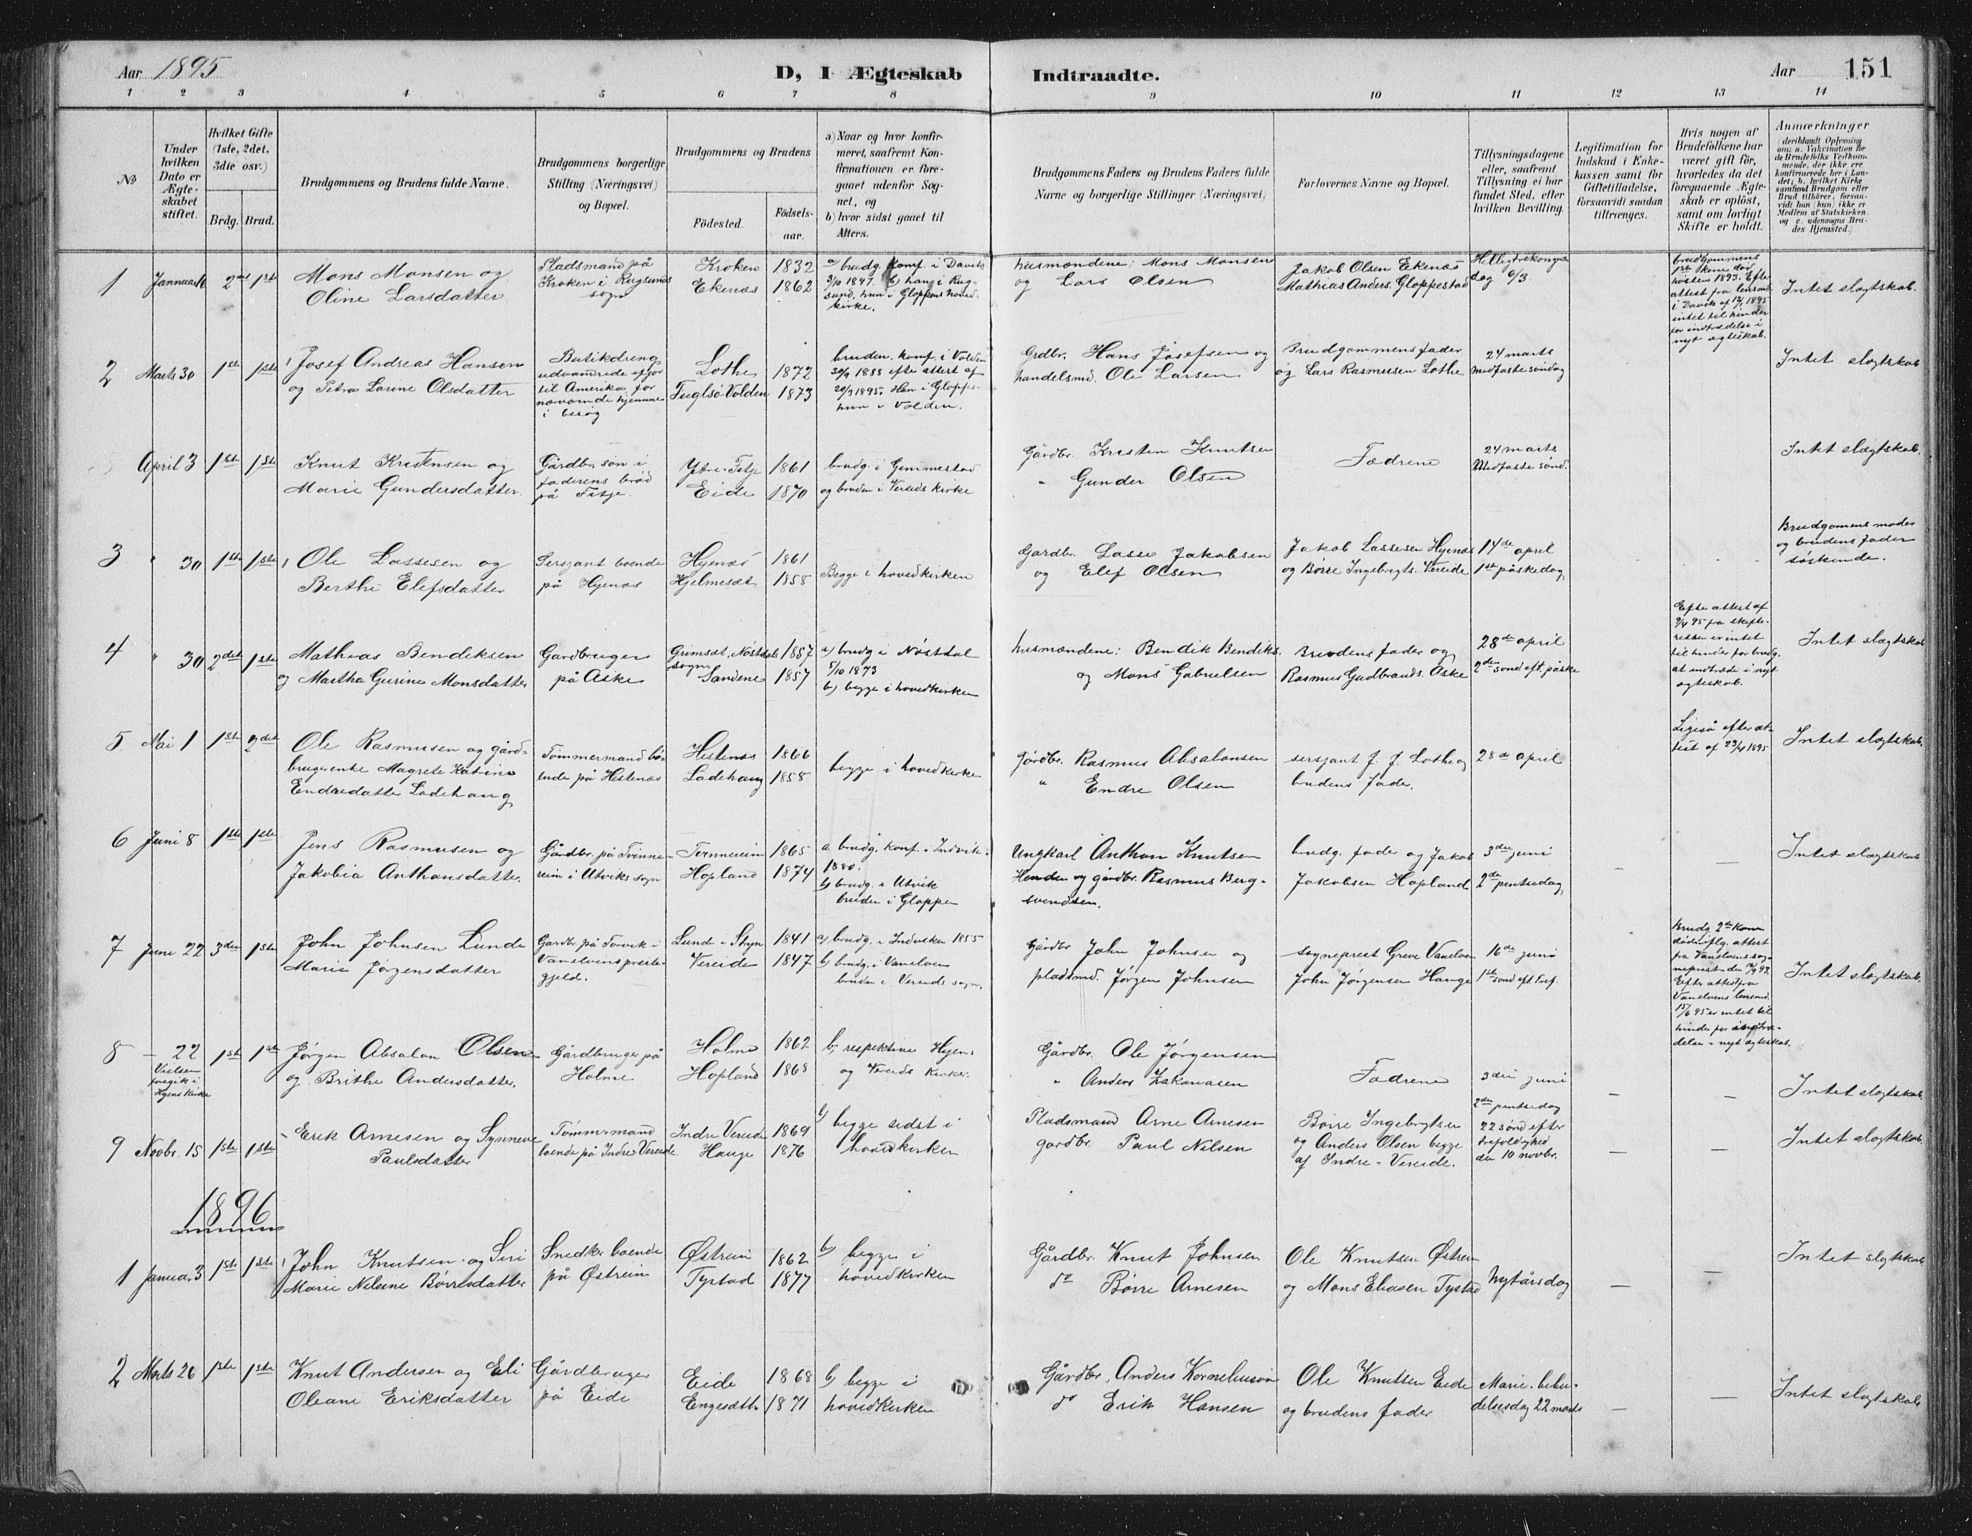 Aar 1895
D, I Ægteskab Indtraadte.
Aar 151
1 2 3 4 5 6 7 8 9 10 11 12 13 14
No
Under hvilken Dato er Ægteskabet stiftet.
Hvilket Gifte (1ste, 2det, 3die osv.)
Brdg. Brud.
Brudgommens og Brudens fulde Navne.
Brudgommens borgerlige Stilling (Næringsvei) og Bopæl.
Brudgommens og Brudens
Fødested.
Fødsels-aar.
a) Naar og hvor konfirmeret, saafremt Konfirmationen er foregaaet udenfor Sognet, og
b) hvor sidst gaaet til Alters.
Brudgommens Faders og Brudens Faders fulde Navne og borgerlige Stillinger (Næringsvei)
Forlovernes Navne og Bopæl.
Tillysningsdagene eller, saafremt Tillysning ei har fundet Sted, efter hvilken Bevilling.
Legitimation for Indskud i Enkekassen samt for Giftetilladelse, forsaavidt saadan tiltrænges.
Hvis nogen af Brudefolkene har været gift før, hvorledes da det foregaaende Ægteskab er opløst, samt om lovligt Skifte er holdt.
Anmærkninger (deriblandt Oplysning om: a. Vakcination for de Brudefolks Vedkommende, der ikke ere konfirmerede her i Landet; b. hvilket Kirkesamfund Brudgom eller Brud tilhører, forsaavidt han (hun) ikke er Medlem af Statskirken og c. udensogns Brudes Hjemsted.)
1 Januar 2det 1ste
Mons Monsen og
Oline Larsdatter
Pladsmand på Kroken i Rugsunds sogn
Kroken 1832
Ekenæs 1862
a brudg. konf. i Davik 1847. b han i Rugsund, hun i Gloppens hovedkirke.
husmændene: Mons Monsen
og Lars Olsen
Jakob Olsen Ekenæs
Mathias Anders. Gloppestad
Helligtrekongersdag 6/3
brudgommens 1ste kone død høsten 1893. Efter attest fra lensmd. i Davik af 12/1 1895 intet til hinder for indtrædelse i nyt ægteskab.
Intet slægtskab.
2 Marts 30 1ste 1ste
Josef Andreas Hansen
og Petra Larine Olsdatter
Butikdreng udvandrede ifjor til Amerika, for nærværende hjemme i besøg
Lothe 1872
Fuglsø-Volden 1873
bruden. konf. i Volden 1888 efter attest af 1895. Han i Gloppe hun i Volden.
Grdbr. Hans Josefsen og
handelsmd. Ole Larsen
Brudgommens fader
og Lars Rasmussen Lothe
24 marts
midfaste søndag
Intet slægtskab
April 3 1ste 1ste
Knut Kristensen og
Marie Gundersdatter
Gårdbr. søn i faderens brød på Fitje.
Ytre-Fitje 1861
Eide 1870
brudg. i Gimmestad
og bruden i Vereids kirke
Gårdbr. Kristen Knutsen
" Gunder Olsen
Fædrene
24 marts
Midfaste sønd.
Intet slægtskab.
3 " 30 1ste 1ste
Ole Lassesen og
Berthe Elefsdatter
Sersjant boende på Hyenæs
Hyenæs 1861
Hjelmesæt 1858
Begge i hovedkirken
Gardbr. Lasse Jakobsen
og Elef Olsen
Jakob Lassesen Hyenæs
og Børre Ingebregts. Vereide
14de april
1ste påskedag
Brudgomens moder og brudens fader søskende.
4 " 30 2det 1ste
Mathias Bendiksen
og Martha Gurine Monsdatter
Gardbruger på Aske
Gimsæt, Nøstdals sogn 1857
Sandene 1857
a) brudg i Nøstdal
5/10 1873
b) begge i hovedkirken
husmændene: Bendik Bendiks.
og Mons Gabrielsen
Brudens fader og
Rasmus Gudbrands. Aske
28de april
2den sønd eft påske
Efter attest af 2/4 95 fra skifteretten er intet til hinder for brudg. at indtræde i nyt ægteskab.
Intet slægtskab
5 Mai 1 1ste 2det
Ole Rasmusen og gårdbrugerenke Magrete Katrine
Endredatter Ladehaug
Tømmermand boende på Hestenæs
Hestenæs 1866
Ladehaug 1858
begge i hovedkirken
Gårdbr. Rasmus Absalonsen
" Endre Olsen
sersjant J. J. Lothe og
brudens fader.
28de april
Ligeså efter attest af 23/4 1895
Intet slægtskab.
6 Juni 8 1ste 1ste
Jens Rasmusen og
Jakobia Anthonsdatter.
Gårdbr. på Tvinnereim i Utviks sogn
Tvinnereim 1865
Hopland 1874
a brudg. konf. i Indvik
1880.
b) brudg. i Utvik
bruden i Gloppen
Ungkarl Anthon Knutsen
Henden og gårdbr. Rasmus Bergsvendsen.
brudg. fader og Jakob
Jakobsen Hopland
3die juni
2den pintsedag
—
Intet slægtskab
7 Juni 22 3die 1ste
John Johnsen Lunde
Marie Jørgensdatter
Gardbr på Torvik i Vanelvens prestegjeld.
Lunde i Stryn 1841
Vereide 1847
a) brudg. i Indviken 1855
b) brudg. i Vanelven
bruden i Vereids sogn.
Gårdbr John Johnsen og
pladsmd. Jørgen Johnsen
sogneprest Greve Vanelven
John Jørgensen Hauge
16de juni
1ste sønd eft Tref.
Brudg 2den kone død ifølg. attest fra Vanelvens sogneprest den 93. Efter attest fra Vanelvens lensmd. 15/6 95 er intet til hinder for indtrædelse i nyt ægteskab.
Intet slægtskab.
8 — 22 1ste 1ste
Vielsen foregik i Hyens kirke
Jørgen Absalon Olsen
og Brithe Andersdatter.
Gårdbruger på Holme
Holme 1862
Hopland 1868
b) respektive Hyens
og Vereids kirker.
Gårdbr. Ole Jørgensen
" Anders Zakariasen
Fædrene
3die juni
2den pintsedag
—
—
Intet slægtskab
9 Novbr. 15 1ste 1ste
Erik Arnesen og Synneve
Paulsdatter
Tømmermand boende på Indre Vereide
Indre Vereide 1869
Hauge 1876
b) begge sidst i
hovedkirken
Pladsmand Arne Arnesen
gardbr. Paul Nilsen
Børre Ingebrigtsen
og Anders Olsen begge
af Indre-Vereide.
22 sønd efter trefoldighed
den 10 novbr.
—
—
Intet slægtskab
1896
1 Januar 3 1ste 1ste
John Knutsen og Siri
Marie Nilsine Børresdatter
Snedker boende på Østrein
Østrein 1862
Tystad 1877
b) begge i
hovedkirken
Gårdbr. Knut Johnsen
do Børre Arnesen
Ole Knutsen Østrein
og Mons Eliasen Tystad
Nytårsdag
—
—
Intet slægtskab
2 Marts 26 1ste 1ste
Knut Andersen og Eli
Oleane Eriksdatter
Gårdbruger på Eide
Eide 1868
Engesæth 1871
b) begge i
hovedkirken
Gårdbr. Anders Korneliusen
do Erik Hansen
Ole Knutsen Eide
og brudens fader
Marie bebudelsesdag 22 marts
—
—
Intet slægtskab